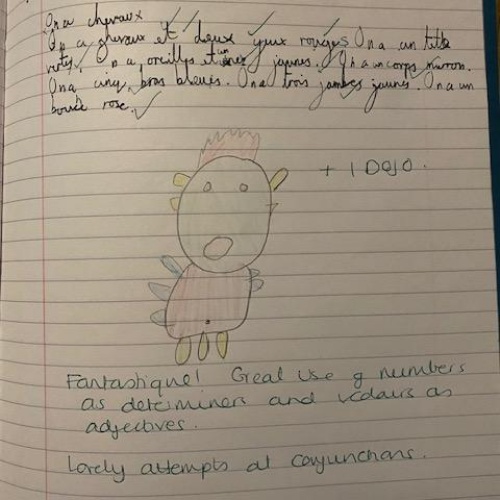 On a chevaux
On a chevaux et deux yeux rouges On a un tête
oreilles et un nez jaunes. On a un corps marron.
On a cinq bras bleus. On a trois jambes jaunes. On a un
bouce rose.
+ 1 DOJO.
Fantastique! Great use of numbers
as determiners and colours as
adjectives.
Lovely attempts at conjunctions.